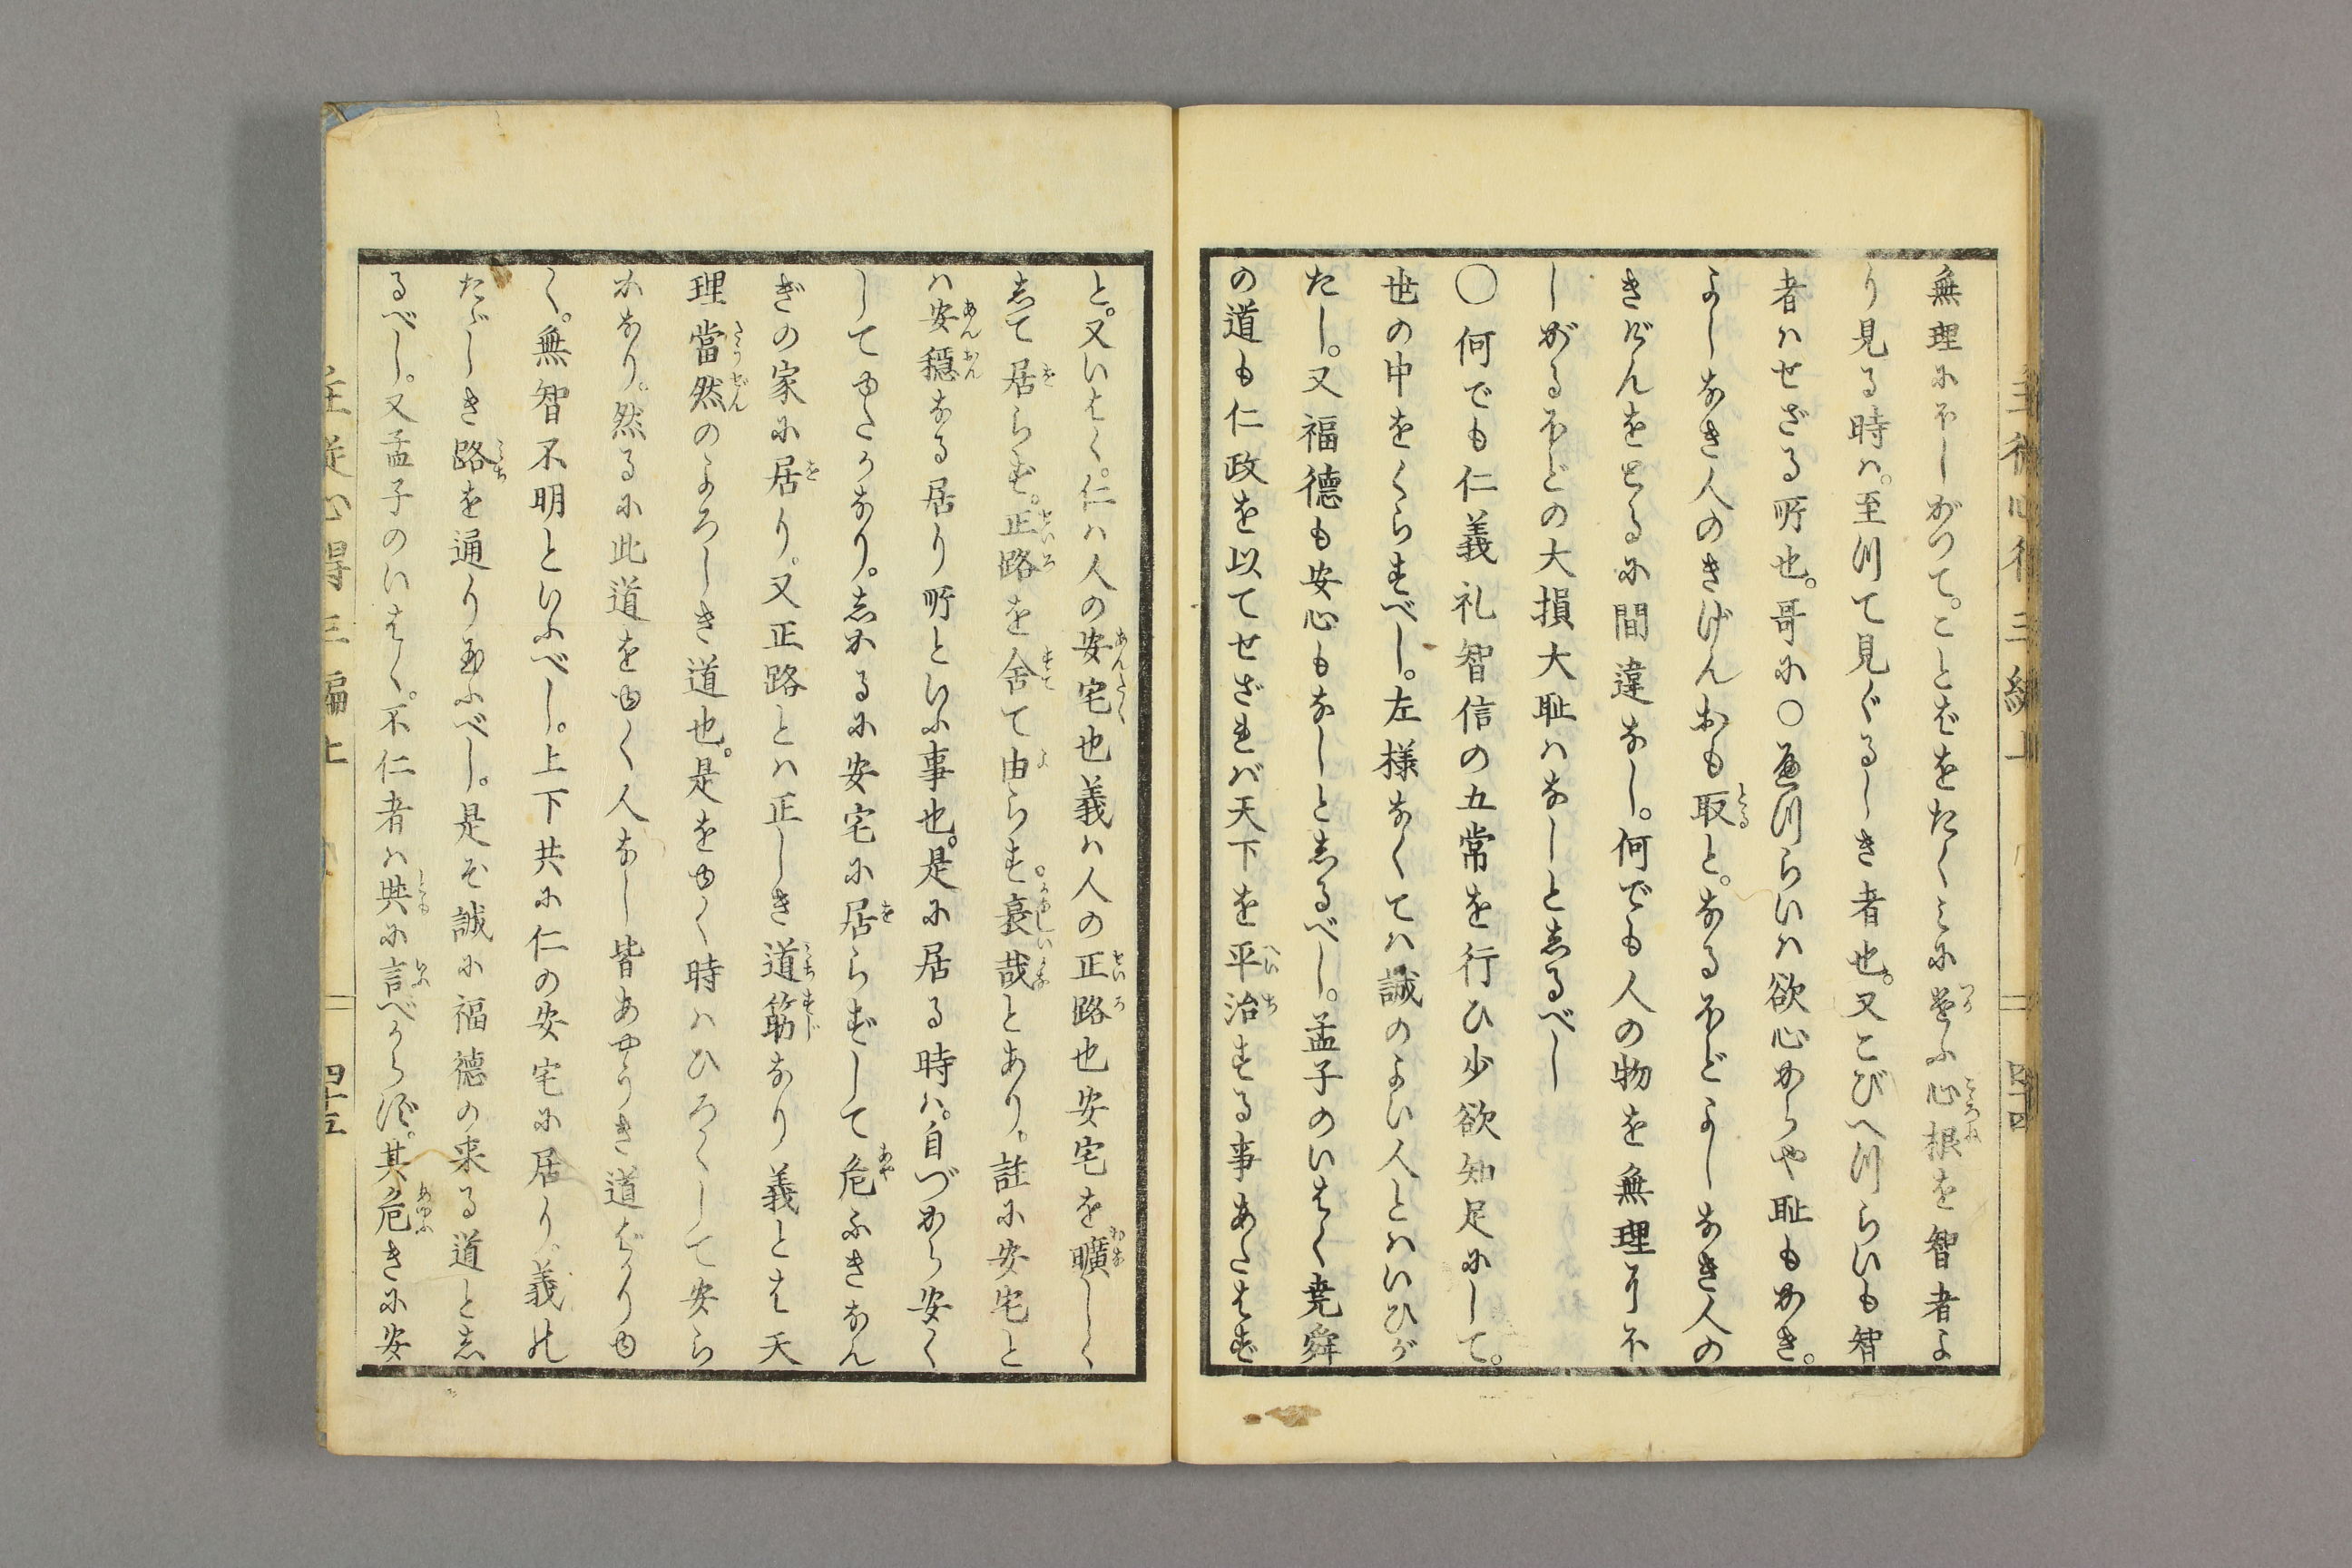 無理にほしがつて。ことばをたくみに遣ふ心根を智者よ
り見る時ハ。至つて見ぐるしき者也。又こびへつらいも智
者ハせざる所也。哥に〇へつらいハ欲心からや恥もかき。
よしなき人のきげんおも取と。なるほどよしなき人の
きげんをとるに間違なし。何でも人の物を無理にほ
しがるほどの大損大恥ハなしとしるべし
〇何でも仁義礼智信の五常を行ひ少欲知足にして。
世の中をくらすべし。左様なくてハ誠のよい人とハいひが
たし。又福徳も安心もなしとしるべし。孟子のいはく堯舜
の道も仁政を以てせざれバ天下を平治する事あたはず
と。又いはく。仁ハ人の安宅也義ハ人の正路也安宅を曠しく
して居らず。正路を舍て由らず。哀哉とあり。註に安宅と
ハ安穏なる居り所といふ事也。是に居る時ハ。自づから安く
してゆたかなり。しかるに安宅に居らずして危ふきなん
ぎの家に居り。又正路とハ正しき道筋なり義とは天
理當然のよろしき道也。是をゆく時ハひろくして安ら
かなり。然るに此道をゆく人なし皆あやうき道ばかりゆ
く。無智不明といふべし。上下共に仁の安宅に居り。義の
たゞしき路を通り玉ふべし。是ぞ誠に福徳の来る道とし
るべし。又孟子のいはく。不仁者ハ與に言べからず。其危きに安
主従心得三編上
四十五